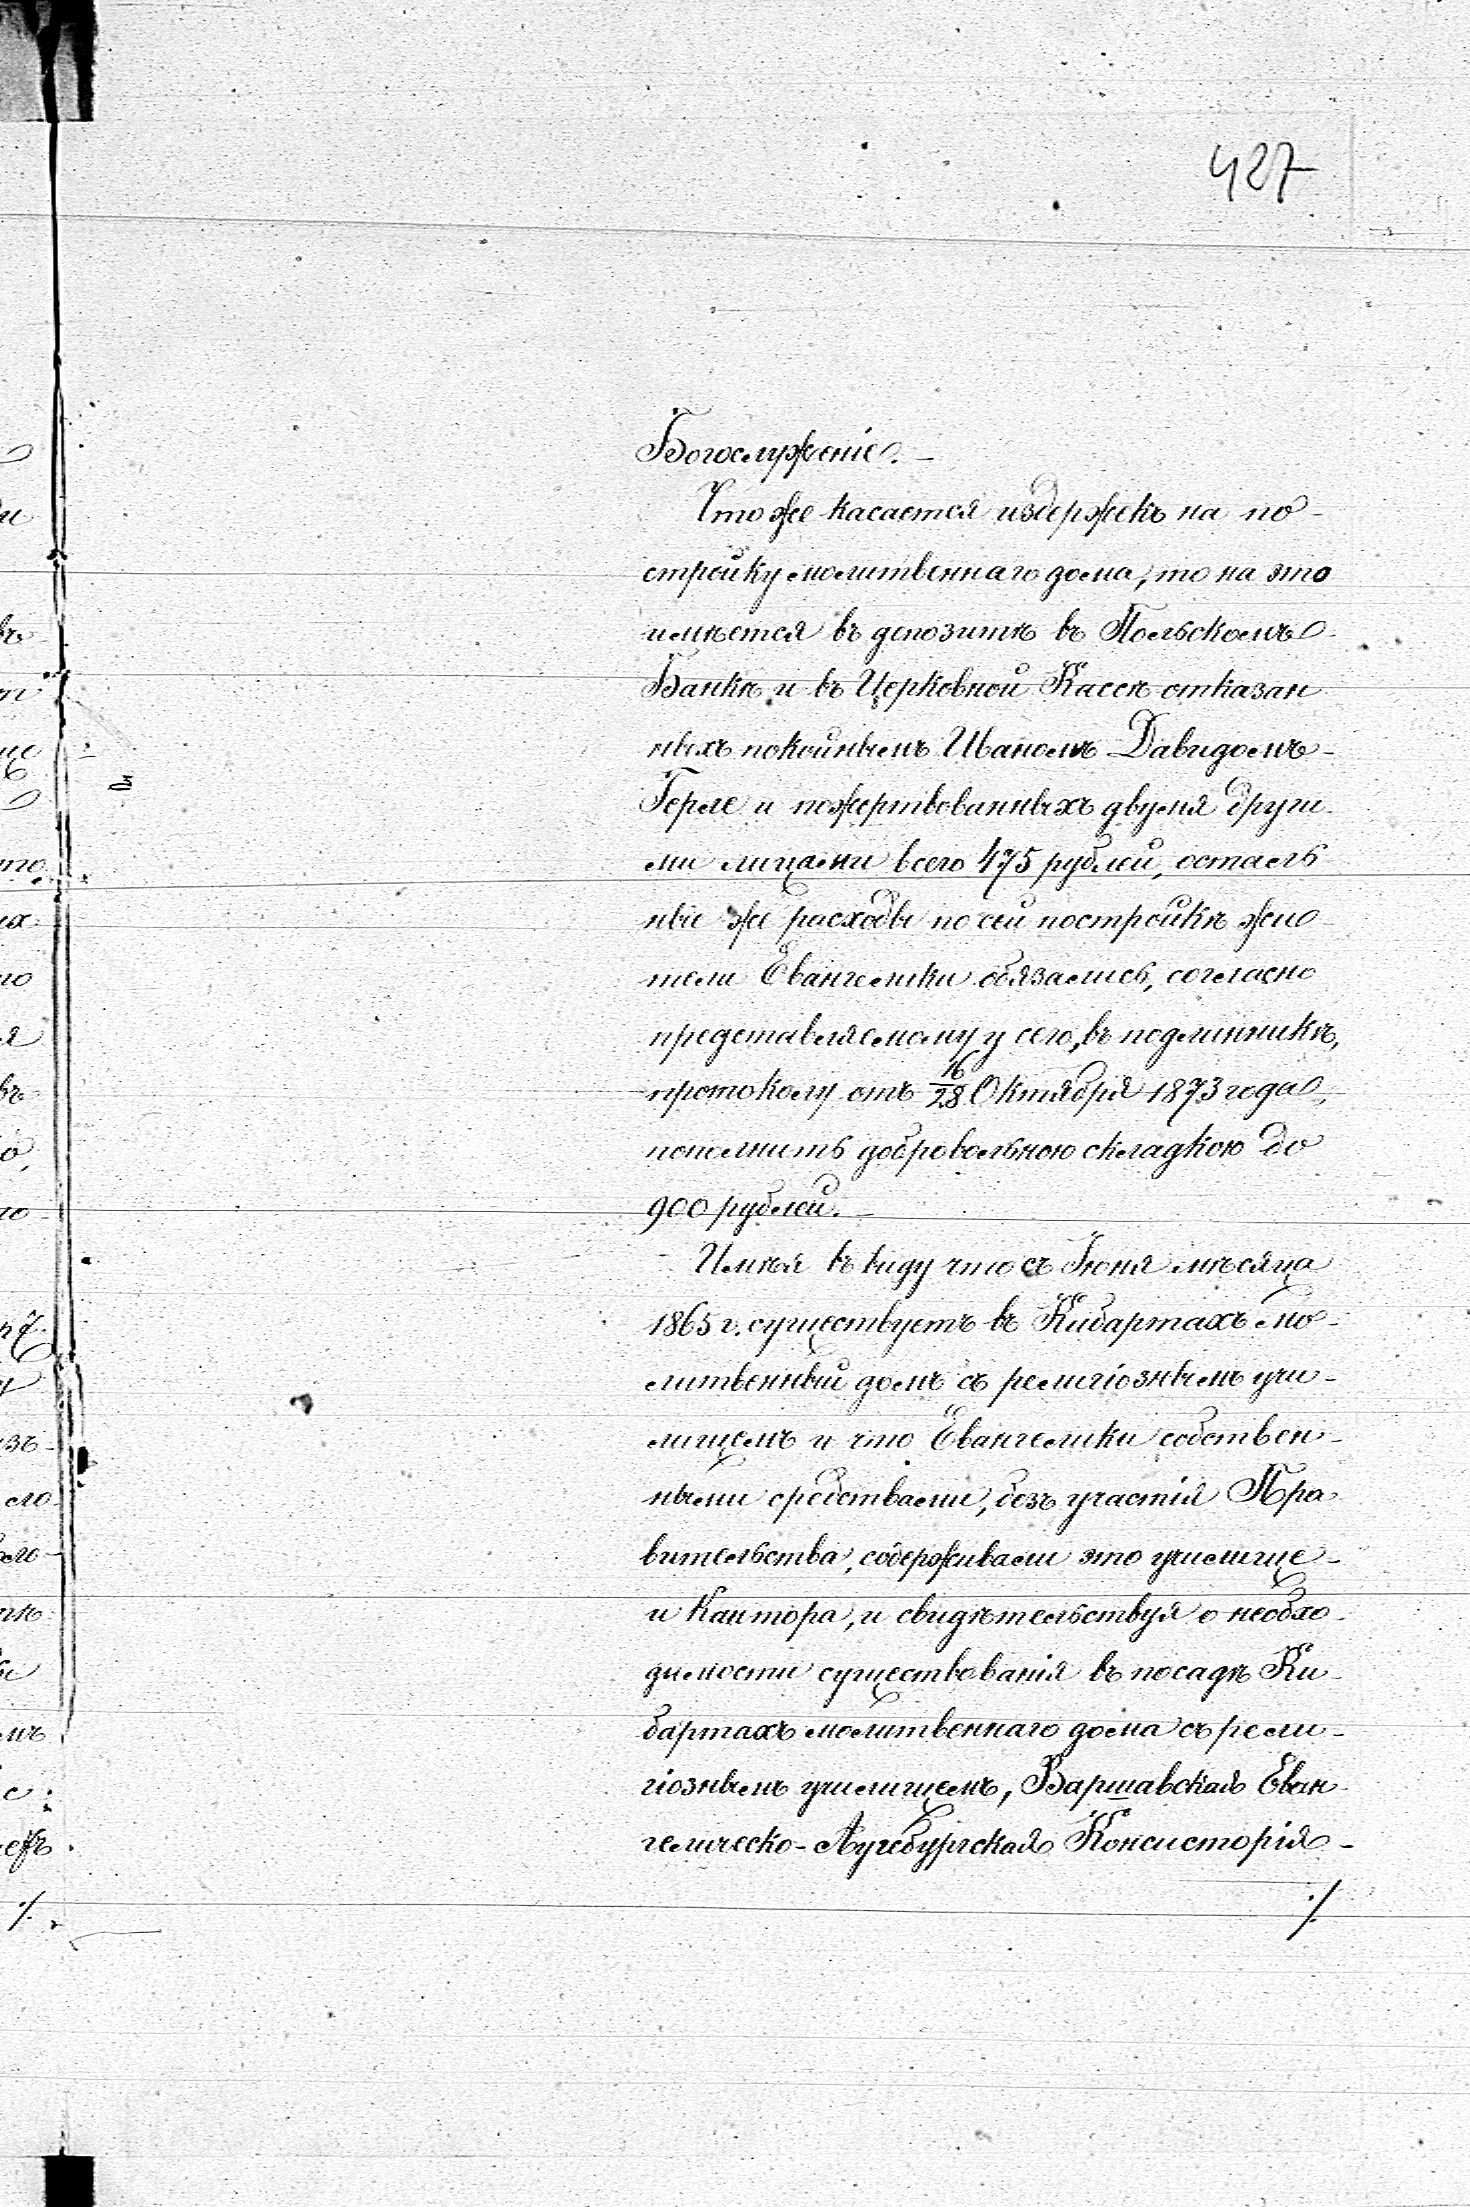 427
Богослуженіе. —
Что же касается издержекъ на по-
стройку молитвеннаго дома, то на это
имѣется въ депозитѣ въ Польскомъ
Банкѣ и въ Церковной Кассѣ отказан
ныхъ покойнымъ Иваномъ Давидомъ
Герле и пожертвованныхъ двумя други-
ми лицами всего 475 рублей, осталь
ные же расходы по сей постройкѣ жи-
тели Евангелики обязались, согласно
представляемому у сего, въ подлинникѣ,
протоколу отъ 16/28 Октября 1873 года,
пополнить добровольною складкою до
900 рублей. —
Имѣя въ виду что съ Іюня мѣсяца
1865 г. существуетъ въ Кибартахъ мо-
литвенный домъ съ религіознымъ учи-
лищемъ и что Евангелики собствен-
ными средствами, безъ участія Пра
вительства, содерживали это училище
и Кантора, и свидѣтельствуя о необхо-
димости существованія въ посадѣ Ки-
бартахъ молитвеннаго дома съ рели-
гіознымъ училищемъ, Варшавская Еван-
гелическо-Аугсбургская Консисторія
./.